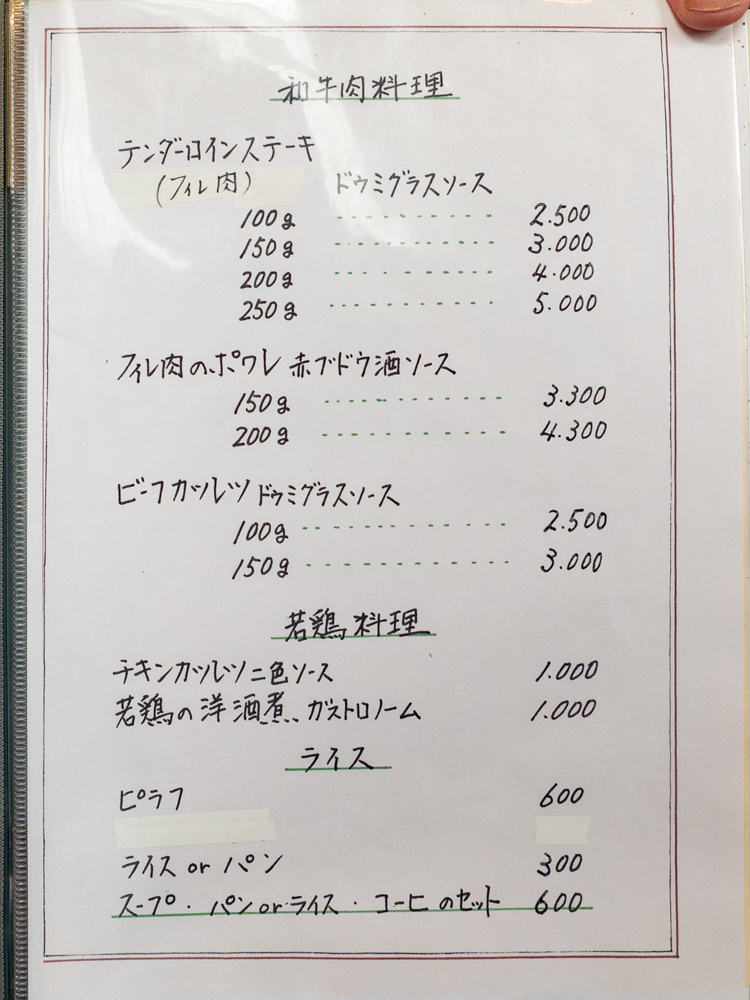 和牛肉料理
テンダーロインステーキ
(フィレ肉) ドゥミグラスソース
100g 2.500
150g 3.000
200g 4.000
250g 5.000
フィレ肉のポワレ 赤ブドウ酒ソース
150g 3.300
200g 4.300
ビーフカツレツ ドゥミグラスソース
100g 2.500
150g 3.000
若鶏料理
チキンカツレツ二色ソース 1.000
若鶏の洋酒煮、ガストロノーム 1.000
ライス
ピラフ 600
ライス or パン 300
スープ・パン or ライス・コーヒのセット 600